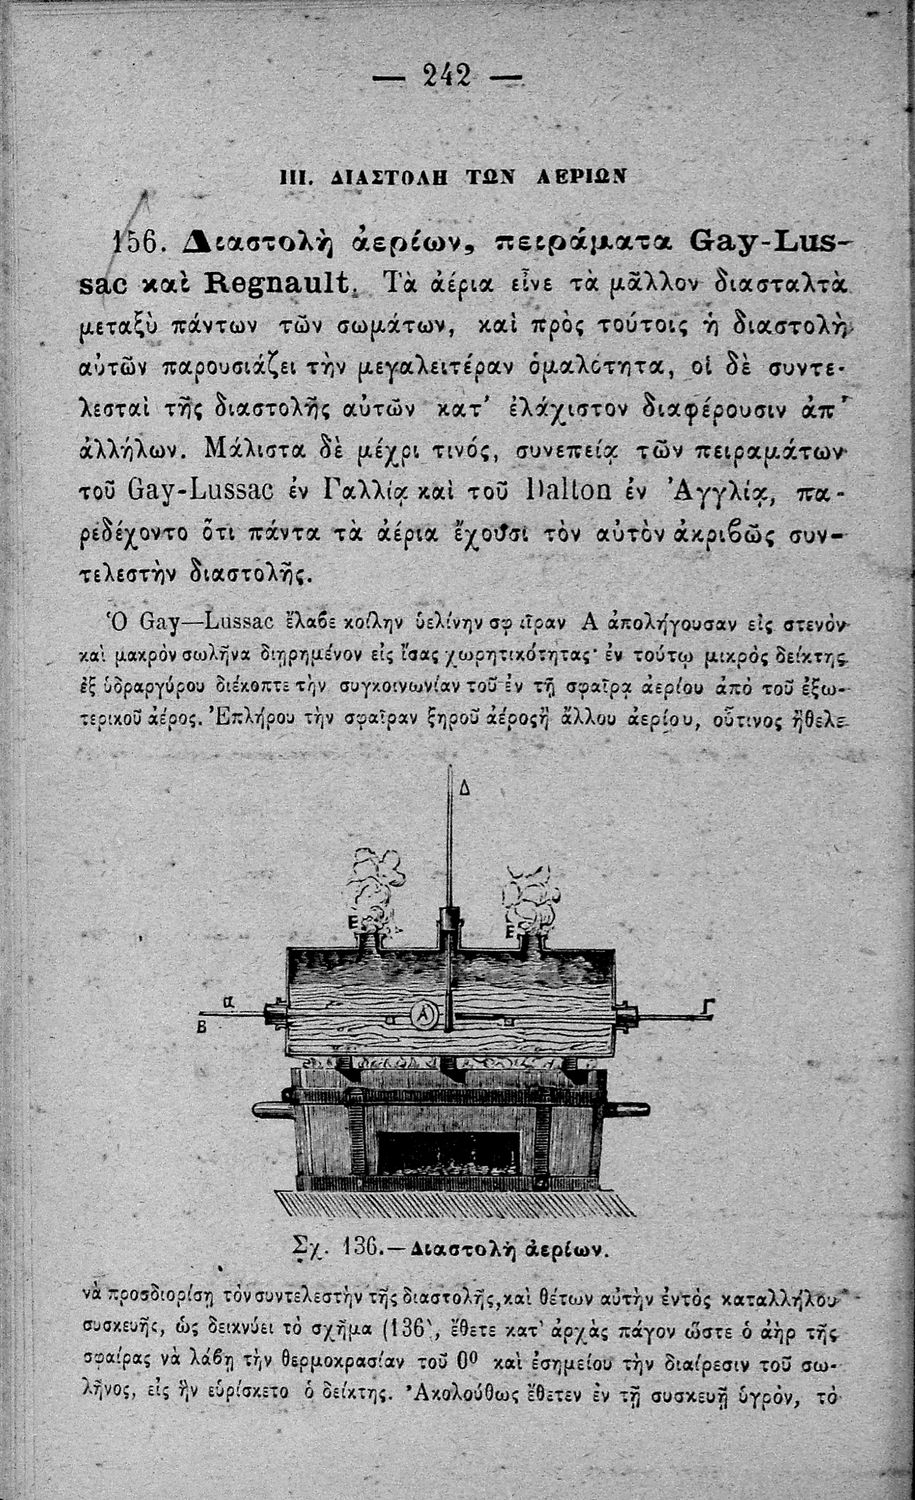 — 242 —
III. ΔΙΑΣΤΟΛΗ ΤΩΝ ΑΕΡΙΩΝ
156. Διαστολὴ ἀερίων, πειράματα Gay-Lus-
sac καὶ Regnault. Τὰ ἀέρια εἶνε τὰ μᾶλλον διασταλτὰ
μεταξὺ πάντων τῶν σωμάτων, καὶ πρὸς τούτοις ἡ διαστολὴ
αὐτῶν παρουσιάζει τὴν μεγαλειτέραν ὁμαλότητα, οἱ δὲ συντε-
λεσταὶ τῆς διαστολῆς αὐτῶν κατ’ ἐλάχιστον διαφέρουσιν ἀπ’
ἀλλήλων. Μάλιστα δὲ μέχρι τινός, συνεπείᾳ τῶν πειραμάτων
τοῦ Gay-Lussac ἐν Γαλλίᾳ καὶ τοῦ Dalton ἐν Ἀγγλίᾳ, πα-
ρεδέχοντο ὅτι πάντα τὰ ἀέρια ἔχουσι τὸν αὐτὸν ἀκριβῶς συν-
τελεστὴν διαστολῆς.
Ὁ Gay—Lussac ἔλαβε κοίλην ὑελίνην σφαῖραν Α ἀπολήγουσαν εἰς στενὸν
καὶ μακρὸν σωλῆνα διῃρημένον εἰς ἴσας χωρητικότητας· ἐν τούτῳ μικρὸς δείκτης
ἐξ ὑδραργύρου διέκοπτε τὴν συγκοινωνίαν τοῦ ἐν τῇ σφαῖρᾳ ἀερίου ἀπὸ τοῦ ἐξω-
τερικοῦ ἀέρος. Ἐπλήρου τὴν σφαῖραν ξηροῦ ἀέρος ἢ ἄλλου ἀερίου, οὗτινος ἤθελε
Δ
Ε
Ε
α
Β
Α
Γ
Σχ. 136.—Διαστολὴ ἀερίων.
νὰ προσδιορίσῃ τὸν συντελεστὴν τῆς διαστολῆς, καὶ θέτων αὐτὴν ἐντὸς καταλλήλου
συσκευῆς, ὡς δεικνύει τὸ σχῆμα (136), ἔθετε κατ’ ἀρχὰς πάγον ὥστε ὁ ἀὴρ τῆς
σφαίρας νὰ λάβῃ τὴν θερμοκρασίαν τοῦ 0⁰ καὶ ἐσημείου τὴν διαίρεσιν τοῦ σω-
λῆνος, εἰς ἣν εὑρίσκετο ὁ δείκτης. Ἀκολούθως ἔθετεν ἐν τῇ συσκευῇ ὑγρὸν, τὸ